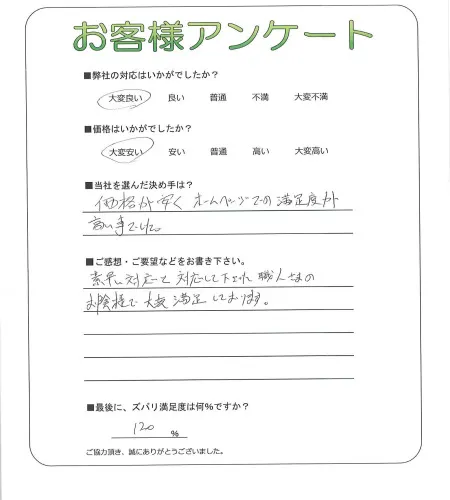 お客様アンケート
■弊社の対応はいかがでしたか？
大変良い 良い 普通 不満 大変不満
■価格はいかがでしたか？
大変安い 安い 普通 高い 大変高い
■当社を選んだ決め手は？
価格が安く ホームページでの満足度が
高い事でした。
■ご感想・ご要望などをお書き下さい。
素早い対応と対応して下さった職人さまの
お陰様で大変満足しております。
■最後に、ズバリ満足度は何％ですか？
120 ％
ご協力頂き、誠にありがとうございました。